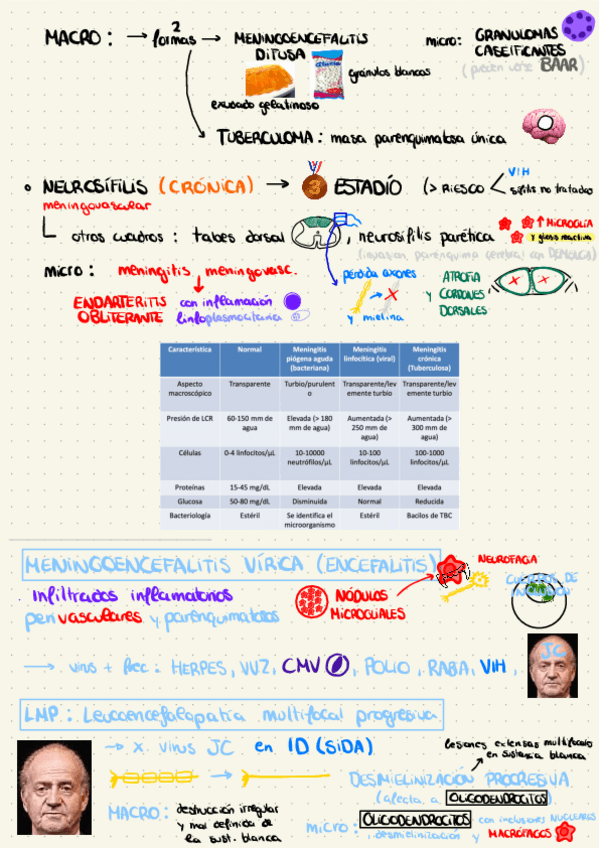 MACRO: → 2 formas → MENINGOENCEFALITIS DIFUSA
micro: GRANULOMAS CASEIFICANTES
BAAR)
gránulos blancos
exudado gelatinoso
TUBERCULOMA: masa parenquimatosa única
NEUROSÍFILIS (CRÓNICA) → 3 ESTADÍO (> RIESGO < VIH
sífilis no tratados
meningovascular
otros cuadros: tabes dorsal, neurosífilis parética
↑ MICROGLÍA
y gliosis reactiva
(invasión parenquima cerebral con DEMENCIA)
micro: meningitis, meningovasc.
ENDARTERITIS OBLITERANTE
con inflamación
linfoplasmocitaria
pérdida axones
y mielina
y
ATROFIA
CORDONES
DORSALES
Característica Normal Meningitis piógena aguda (bacteriana) Meningitis linfocítica (viral) Meningitis crónica (Tuberculosa)
Aspecto macroscópico Transparente Turbio/purulento Transparente/levemente turbio Transparente/levemente turbio
Presión de LCR 60-150 mm de agua Elevada (> 180 mm de agua) Aumentada (> 250 mm de agua) Aumentada (> 300 mm de agua)
Células 0-4 linfocitos/µL 10-10000 neutrófilos/µL 10-100 linfocitos/µL 100-1000 linfocitos/µL
Proteínas 15-45 mg/dL Elevada Elevada Elevada
Glucosa 50-80 mg/dL Disminuida Normal Reducida
Bacteriología Estéril Se identifica el microorganismo Estéril Bacilos de TBC
MENINGOENCEFALITIS VÍRICA (ENCEFALITIS)
NEUROFAGIA
CUERPOS DE
INCLUSIÓN
Infiltrados inflamatorios
perivasculares y parenquimatosos
NÓDULOS
MICROGLIALES
→ virus + frec: HERPES, VVZ, CMV, POLIO, RABIA, VIH,
JC
LMP: Leucoencefalopatía multifocal progresiva
→ x virus JC en ID (SIDA)
lesiones extensas multifocales
en sustancia blanca
DESMIELINIZACIÓN PROGRESIVA
(afecta a OLIGODENDROCITOS)
MACRO: destrucción irregular
y mal definida de
la sust. blanca
micro: OLIGODENDROCITOS con inclusiones NUCLEARES
, desmielinización y MACRÓFAGOS